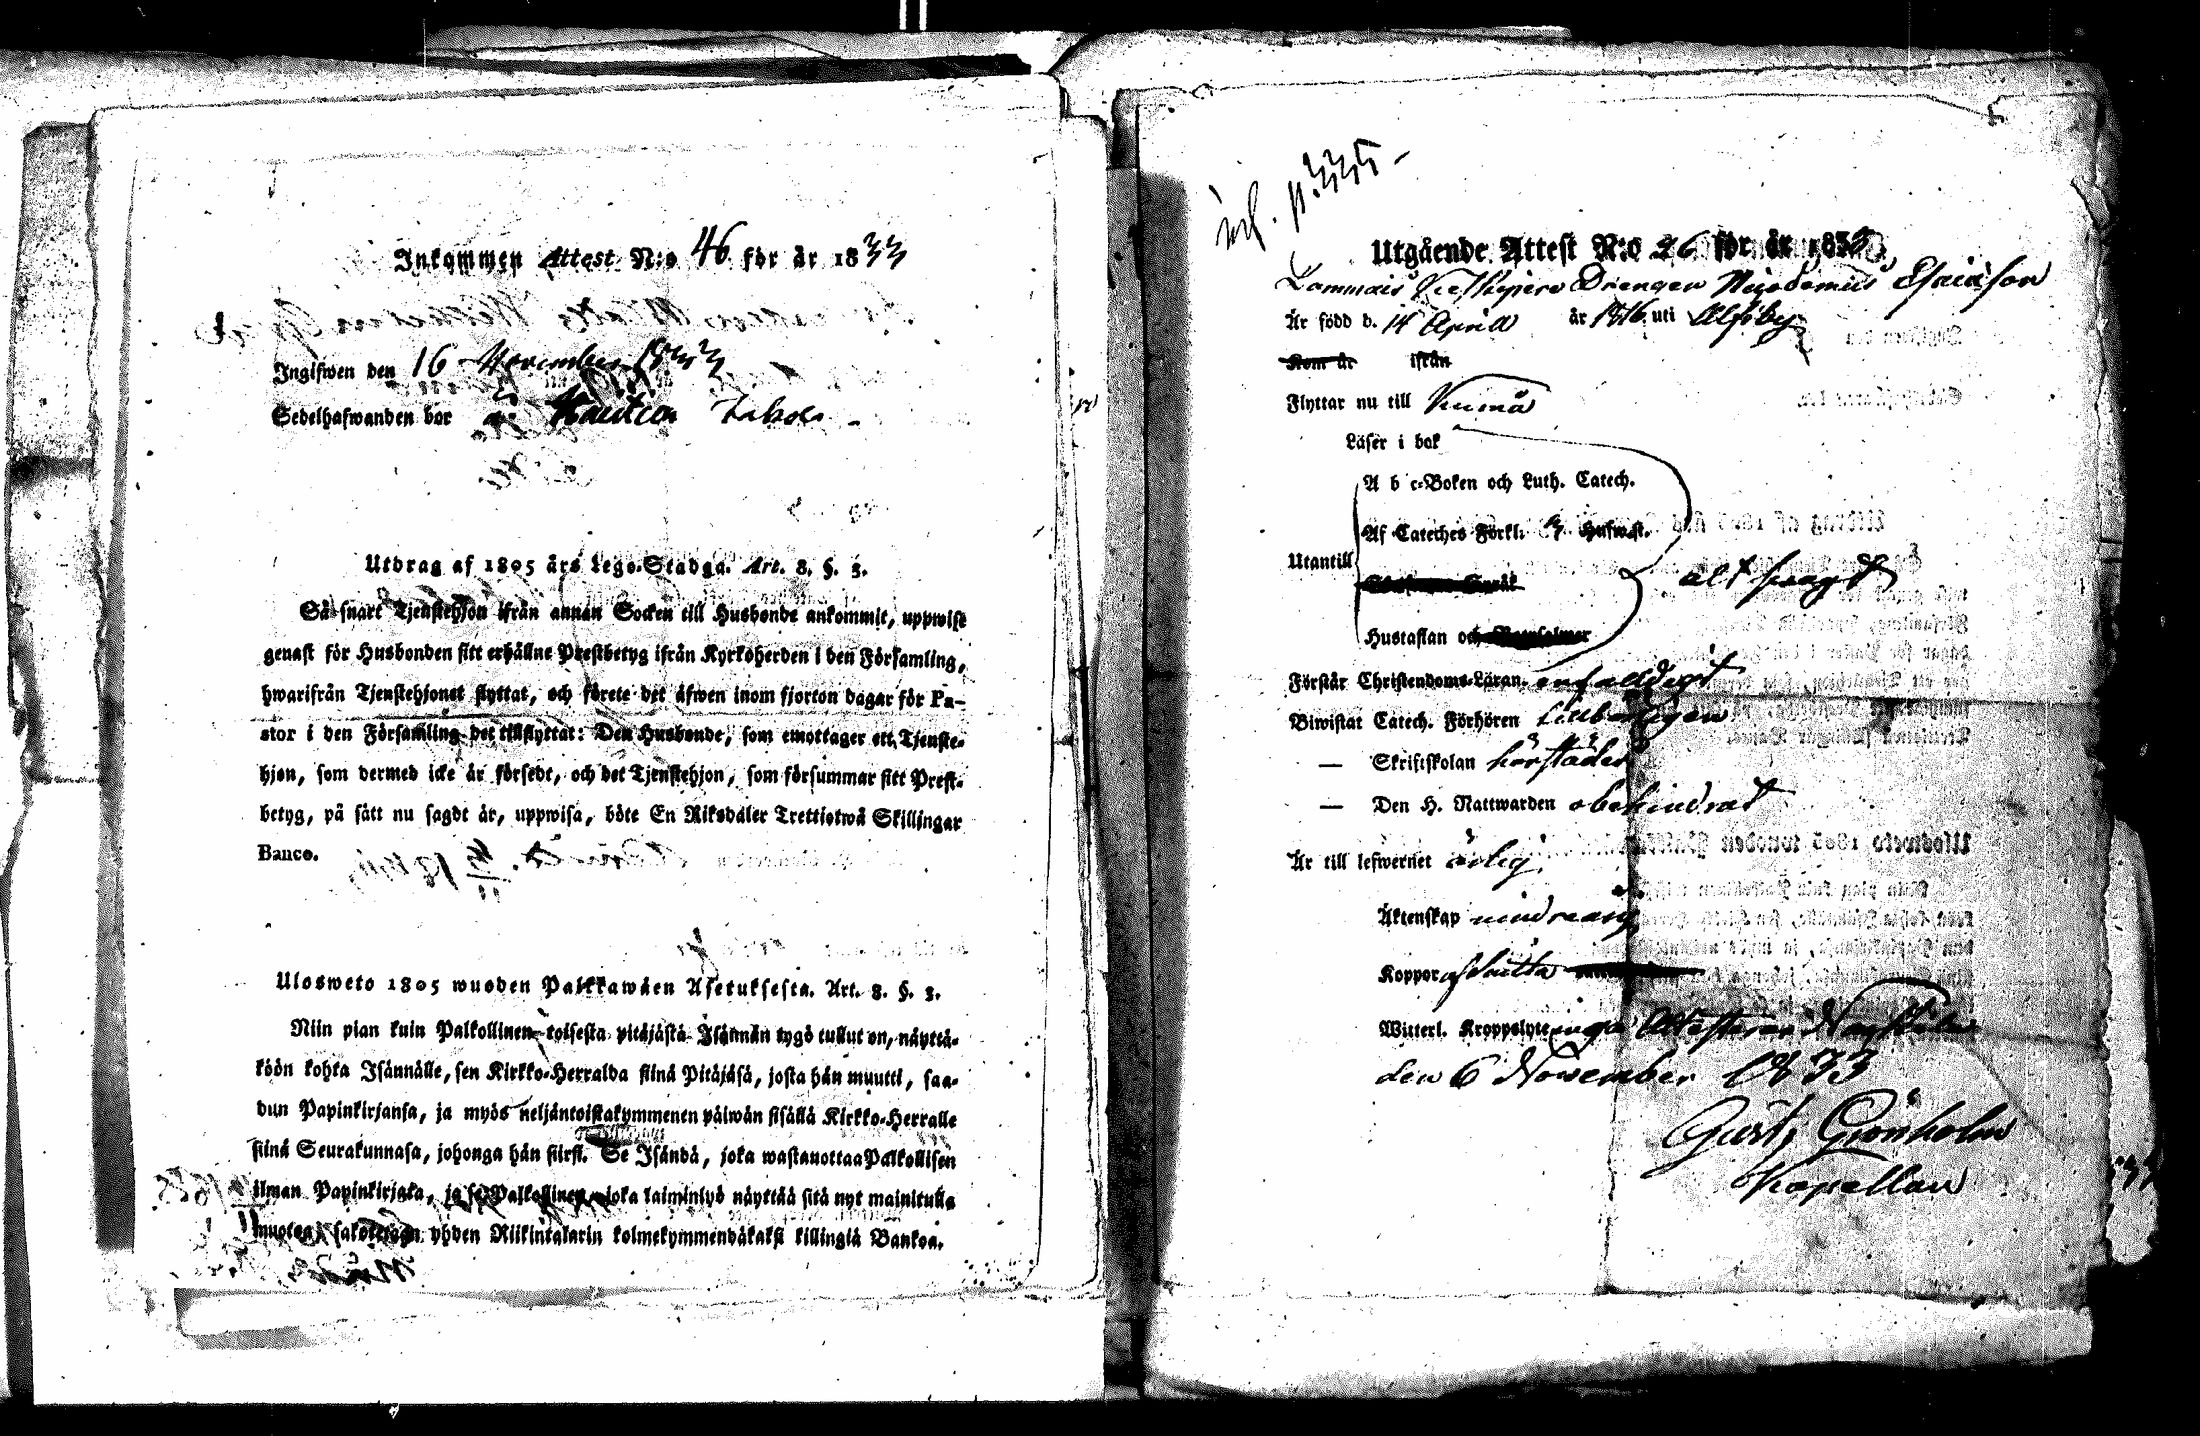 Inkommen Attest N:o 46 för år 1833
Ingifwen den 16 November 1833
Sedelhafwanden bor
Utdrag af 1805 års Lego-Stadga. Art. 8. §. 3.
Så snart Tjenstehjon ifrån annan Socken till Husbonde ankommit, uppwise
genast för Husbonden sitt erhållne Prestbetyg ifrån Kyrkoherden i den Församling,
hwarifrån Tjenstehjonet flyttat, och förete det äfwen inom fjorton dagar för Pa-
stor i den Församling det tillflyttat: Den Husbonde, som emottager ett Tjenste-
hjon, som dermed icke är försedt, och det Tjenstehjon, som försummar sitt Prest-
betyg, på sätt nu sagdt är, uppwisa, böte En Riksdaler Trettiotwå Skillingar
Banco.
Ulosweto 1805 wuoden Palkkawäen Asetuksesta. Art. 8. §. 3.
Niin pian kuin Palkollinen toisesta pitäjästä Isännän tygö tullut on, näyttä-
köön kohta Isännälle, sen Kirkko-Herralda siinä Pitäjäsä, josta hän muutti, saa-
dun Papinkirjansa, ja myös neljäntoistakymmenen päiwän sisällä Kirkko-Herralle
siinä Seurakunnasa, johonga hän siirsi. Se Isändä, joka wastauottaa Palkollisen
ilman Papinkirjata, ja se Palkollinen, joka laiminlyö näyttää sitä nyt mainitulla
muotoa, sakotetaan yhden Riikintalarin kolmekymmendäkaksi killingiä Bankoa.
Utgående Attest N:o 26 för år 1833
Drengen Nicodemus Esaiason
Är född d. 14 April år 1816 uti Alsby
Kom år ifrån
Flyttar nu till Kumå
Läser i bok
A b c-Boken och Luth. Catech.
Af Cateches Förkl. 3 Hufwst.
Utantill
Hustaflan och
Förstår Christendoms-Läran enfalldigt
Biwistat Catech. Förhören
— Skriftskolan
— Den H. Nattwarden obehindrat
Är till lefwernet ärlig
Äktenskap mindreårig
Koppor
Witterl. Kroppslyte inga
den 6 November 1833
Gust. Grönholm
Kapellan